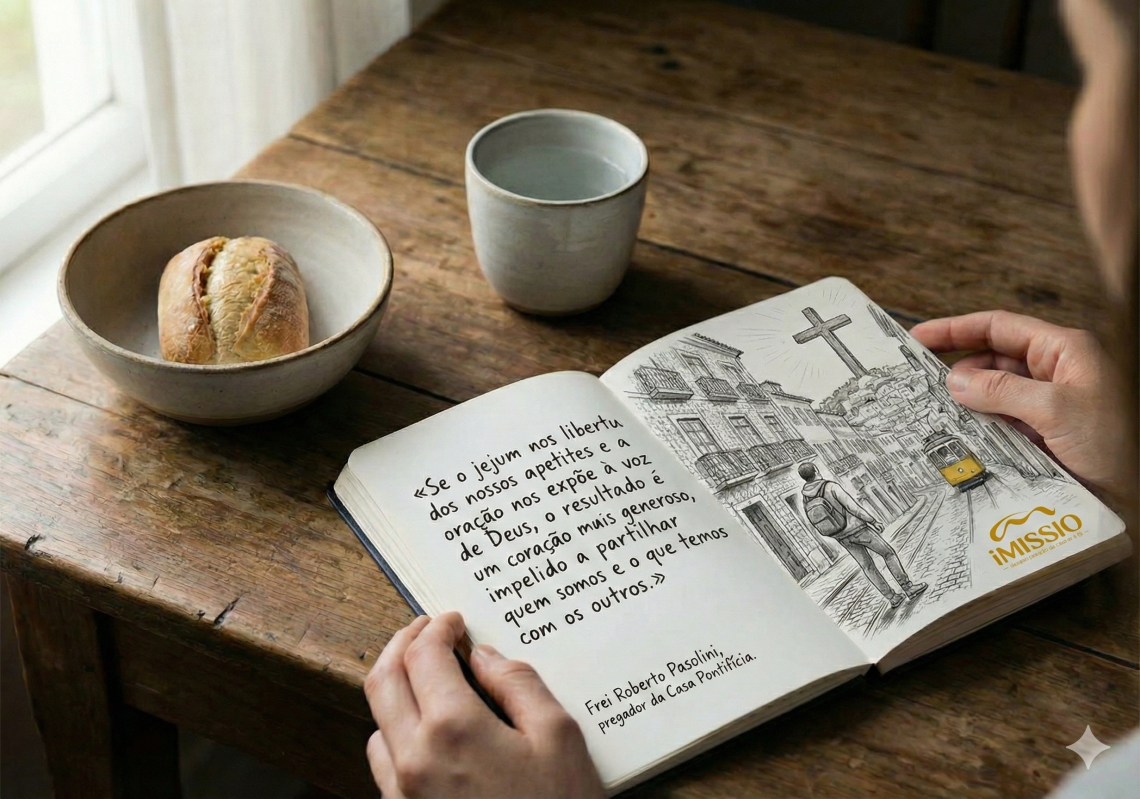 «Se o jejum nos liberta
dos nossos apetites e a
oração nos expõe à voz
de Deus, o resultado é
um coração mais generoso,
impelido a partilhar
quem somos e o que temos
com os outros.»
Frei Roberto Pasolini,
pregador da Casa Pontifícia.
iMISSIO